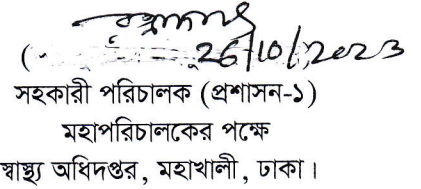 26/10/2023
সহকারী পরিচালক (প্রশাসন-১)
মহাপরিচালকের পক্ষে
স্বাস্থ্য অধিদপ্তর, মহাখালী, ঢাকা।